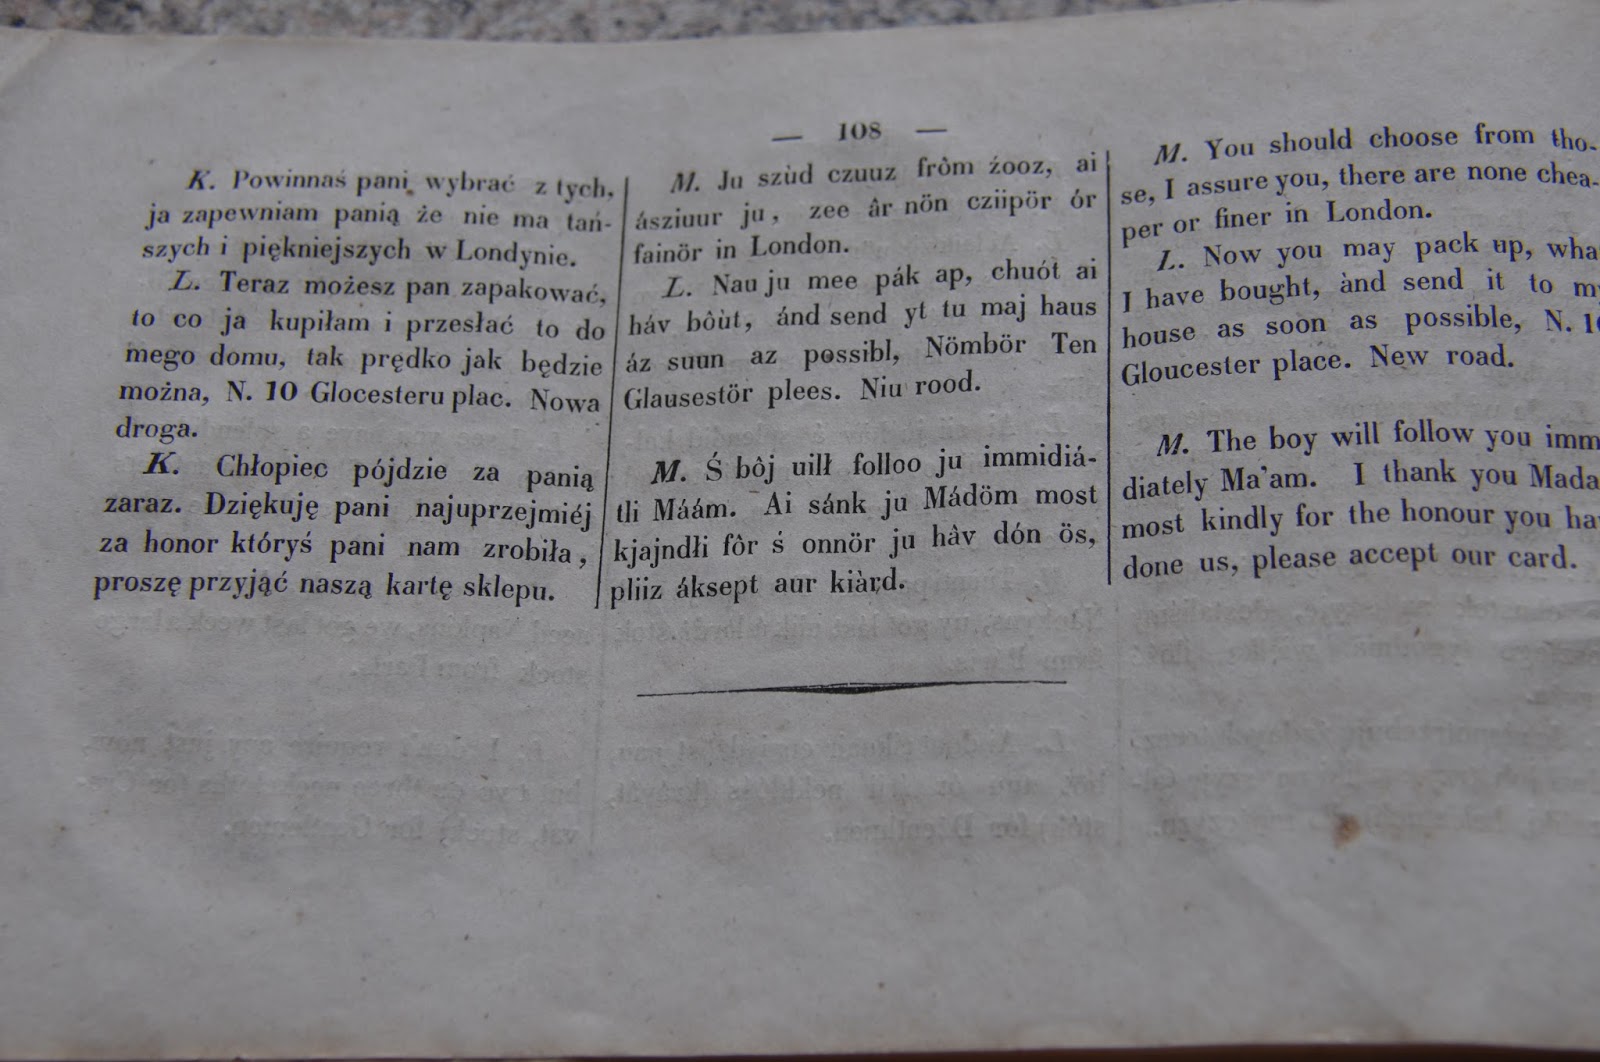 — 108 —
K. Powinnaś pani wybrać z tych,
ja zapewniam panią że nie ma tań-
szych i piękniejszych w Londynie.
L. Teraz możesz pan zapakować,
to co ja kupiłam i przesłać to do
mego domu, tak prędko jak będzie
można, N. 10 Glocesteru plac. Nowa
droga.
K. Chłopiec pójdzie za panią
zaraz. Dziękuję pani najuprzejmiéj
za honor któryś pani nam zrobiła,
proszę przyjąć naszą kartę sklepu.
M. Ju szùd czuuz frôm źooz, ai
ásziuur ju, zee âr nön cziipör ór
fainör in London.
L. Nau ju mee pák ap, chuót ai
háv bôùt, ánd send yt tu maj haus
áz suun az possibl, Nömbör Ten
Glausestör plees. Niu rood.
M. Ś bôj uilł folloo ju immidiá-
tli Máám. Ai sánk ju Mádöm most
kjajndłi fôr ś onnör ju hàv dón ös,
pliiz áksept aur kiàrd.
M. You should choose from tho-
se, I assure you, there are none chea-
per or finer in London.
L. Now you may pack up, wha
I have bought, ànd send it to m
house as soon as possible, N. 1
Gloucester place. New road.
M. The boy will follow you imm
diately Ma'am. I thank you Mada
most kindly for the honour you ha
done us, please accept our card.